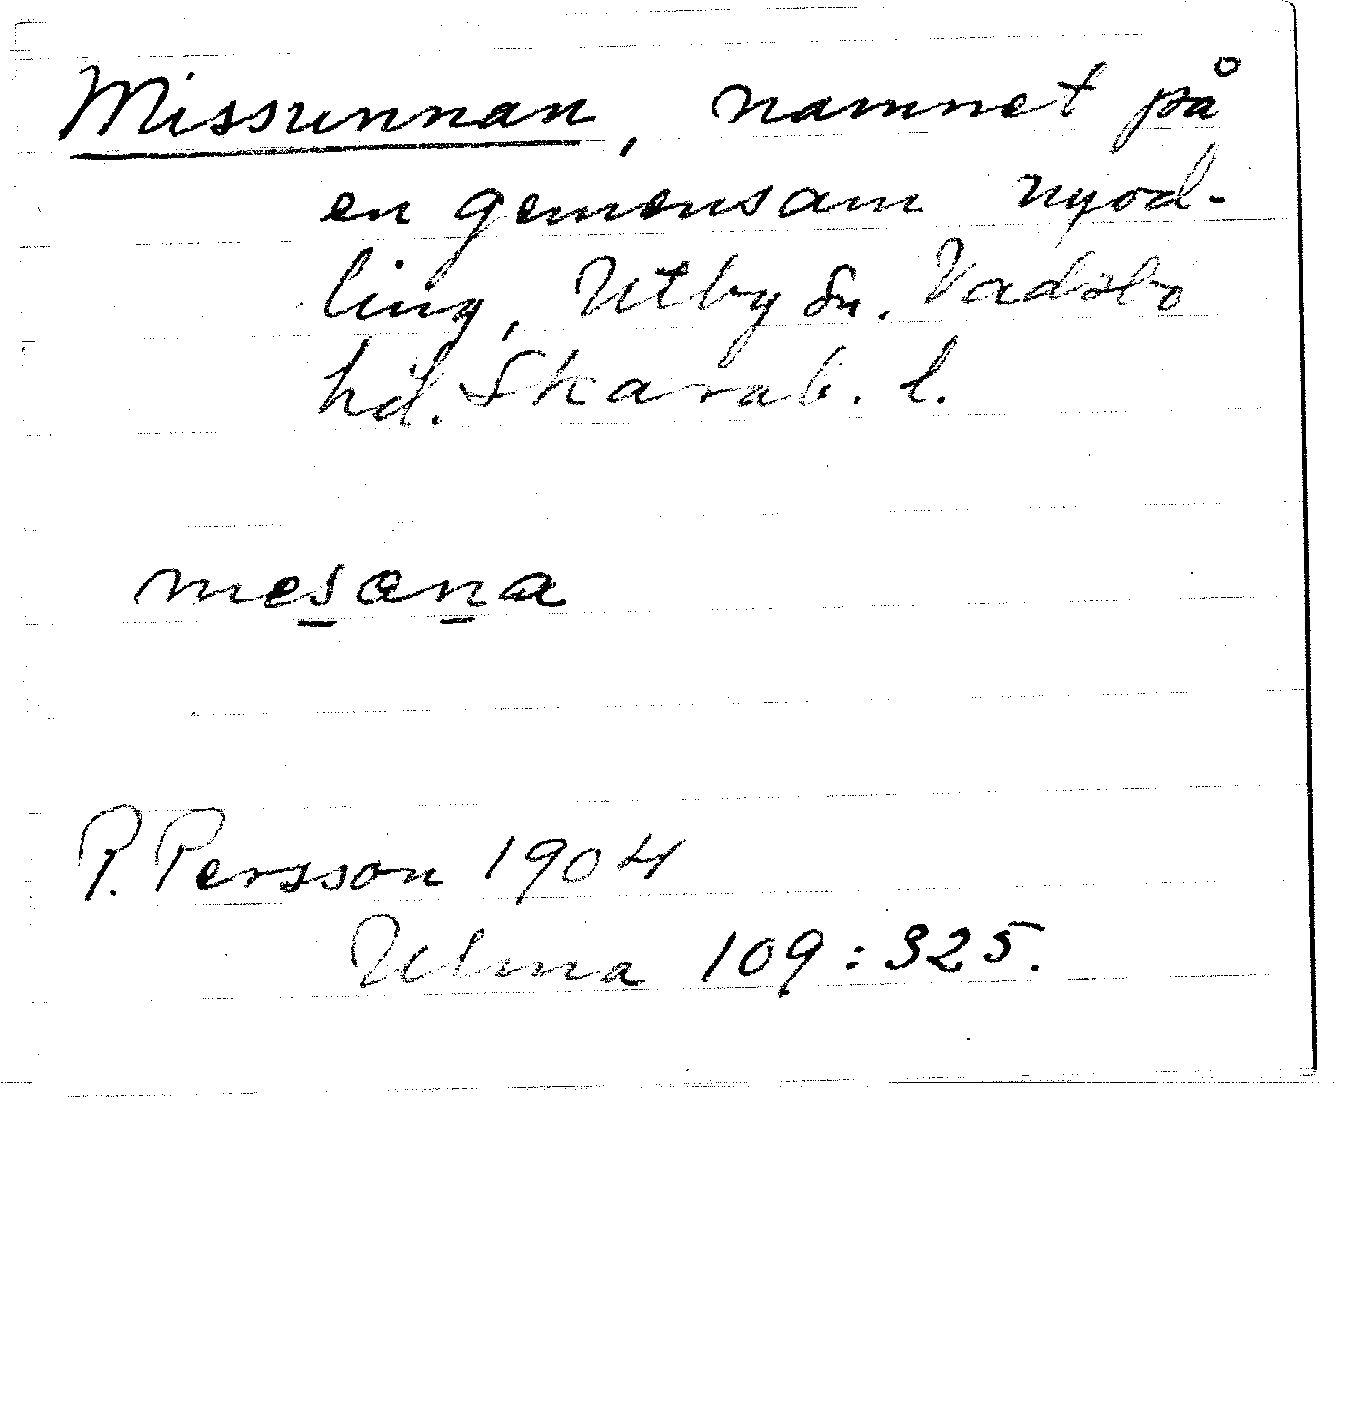 Missunnan, namnet på
en gemensam nyod-
ling, Utby Sn. Vadsbo
hd. Skarab. l.
mesana
P. Persson 1904
Ulma 109:325.